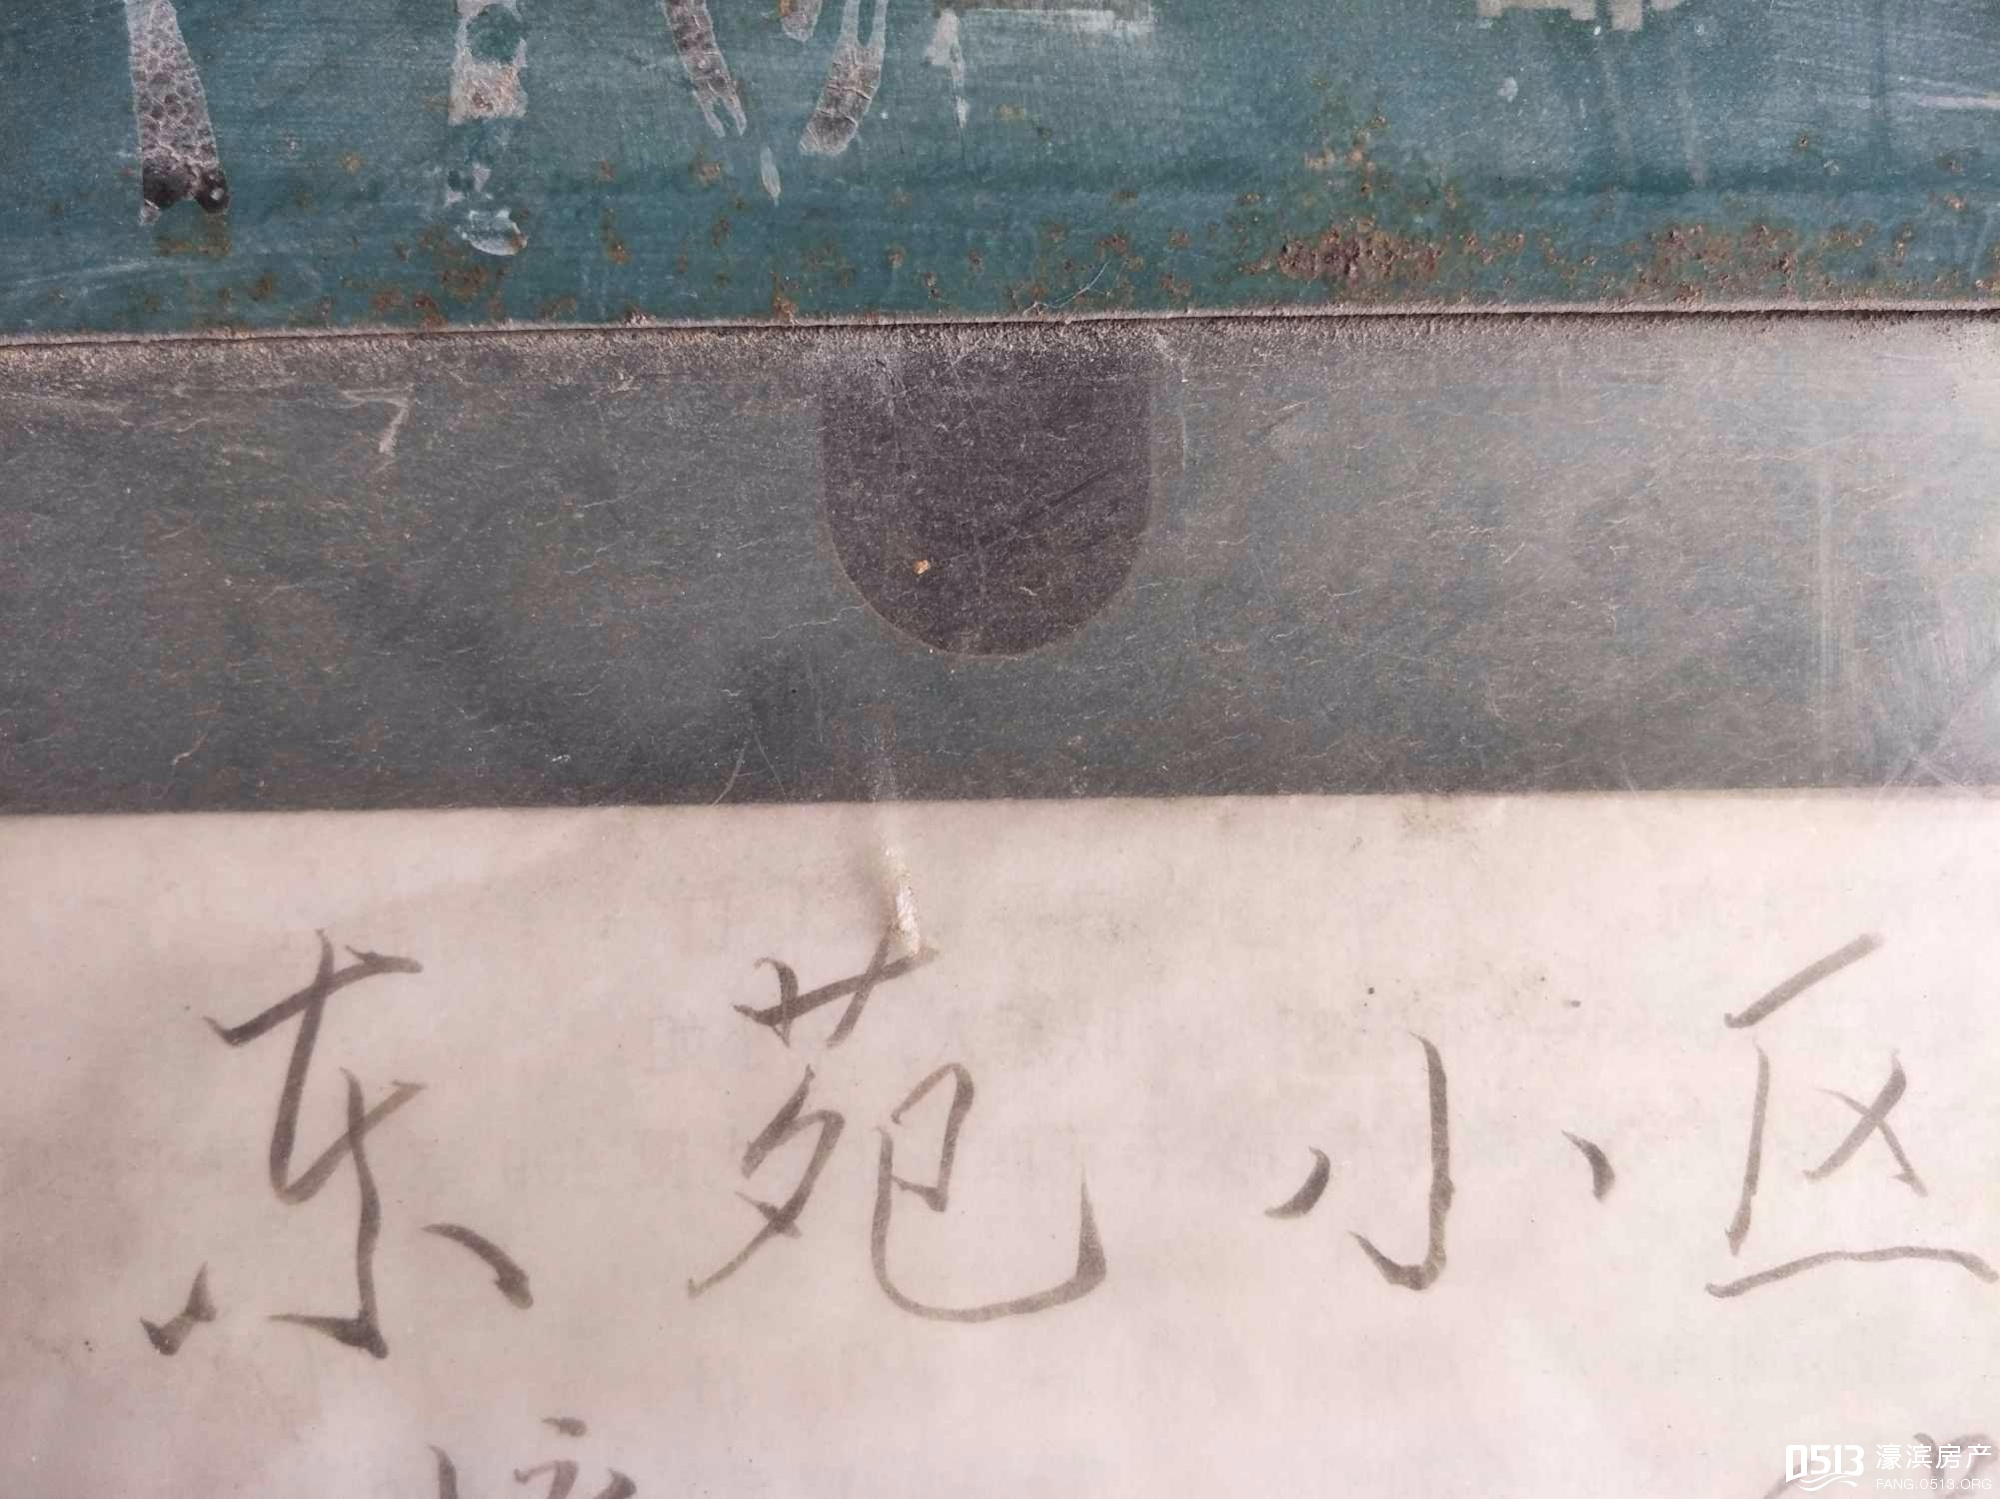 东苑小区
0513 濠滨房产
FANG.0513.ORG